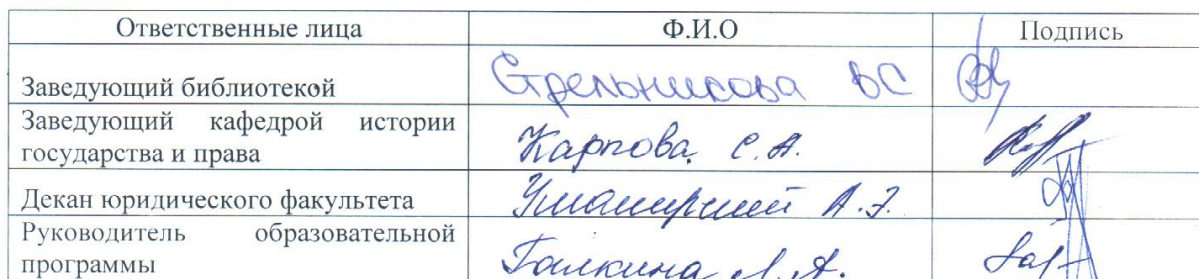 Ответственные лица Ф.И.О Подпись
Заведующий библиотекой Стрельникова ВС
Заведующий кафедрой истории
государства и права Карпова С.А.
Декан юридического факультета А.Э.
Руководитель образовательной
программы Галкина Л.А.